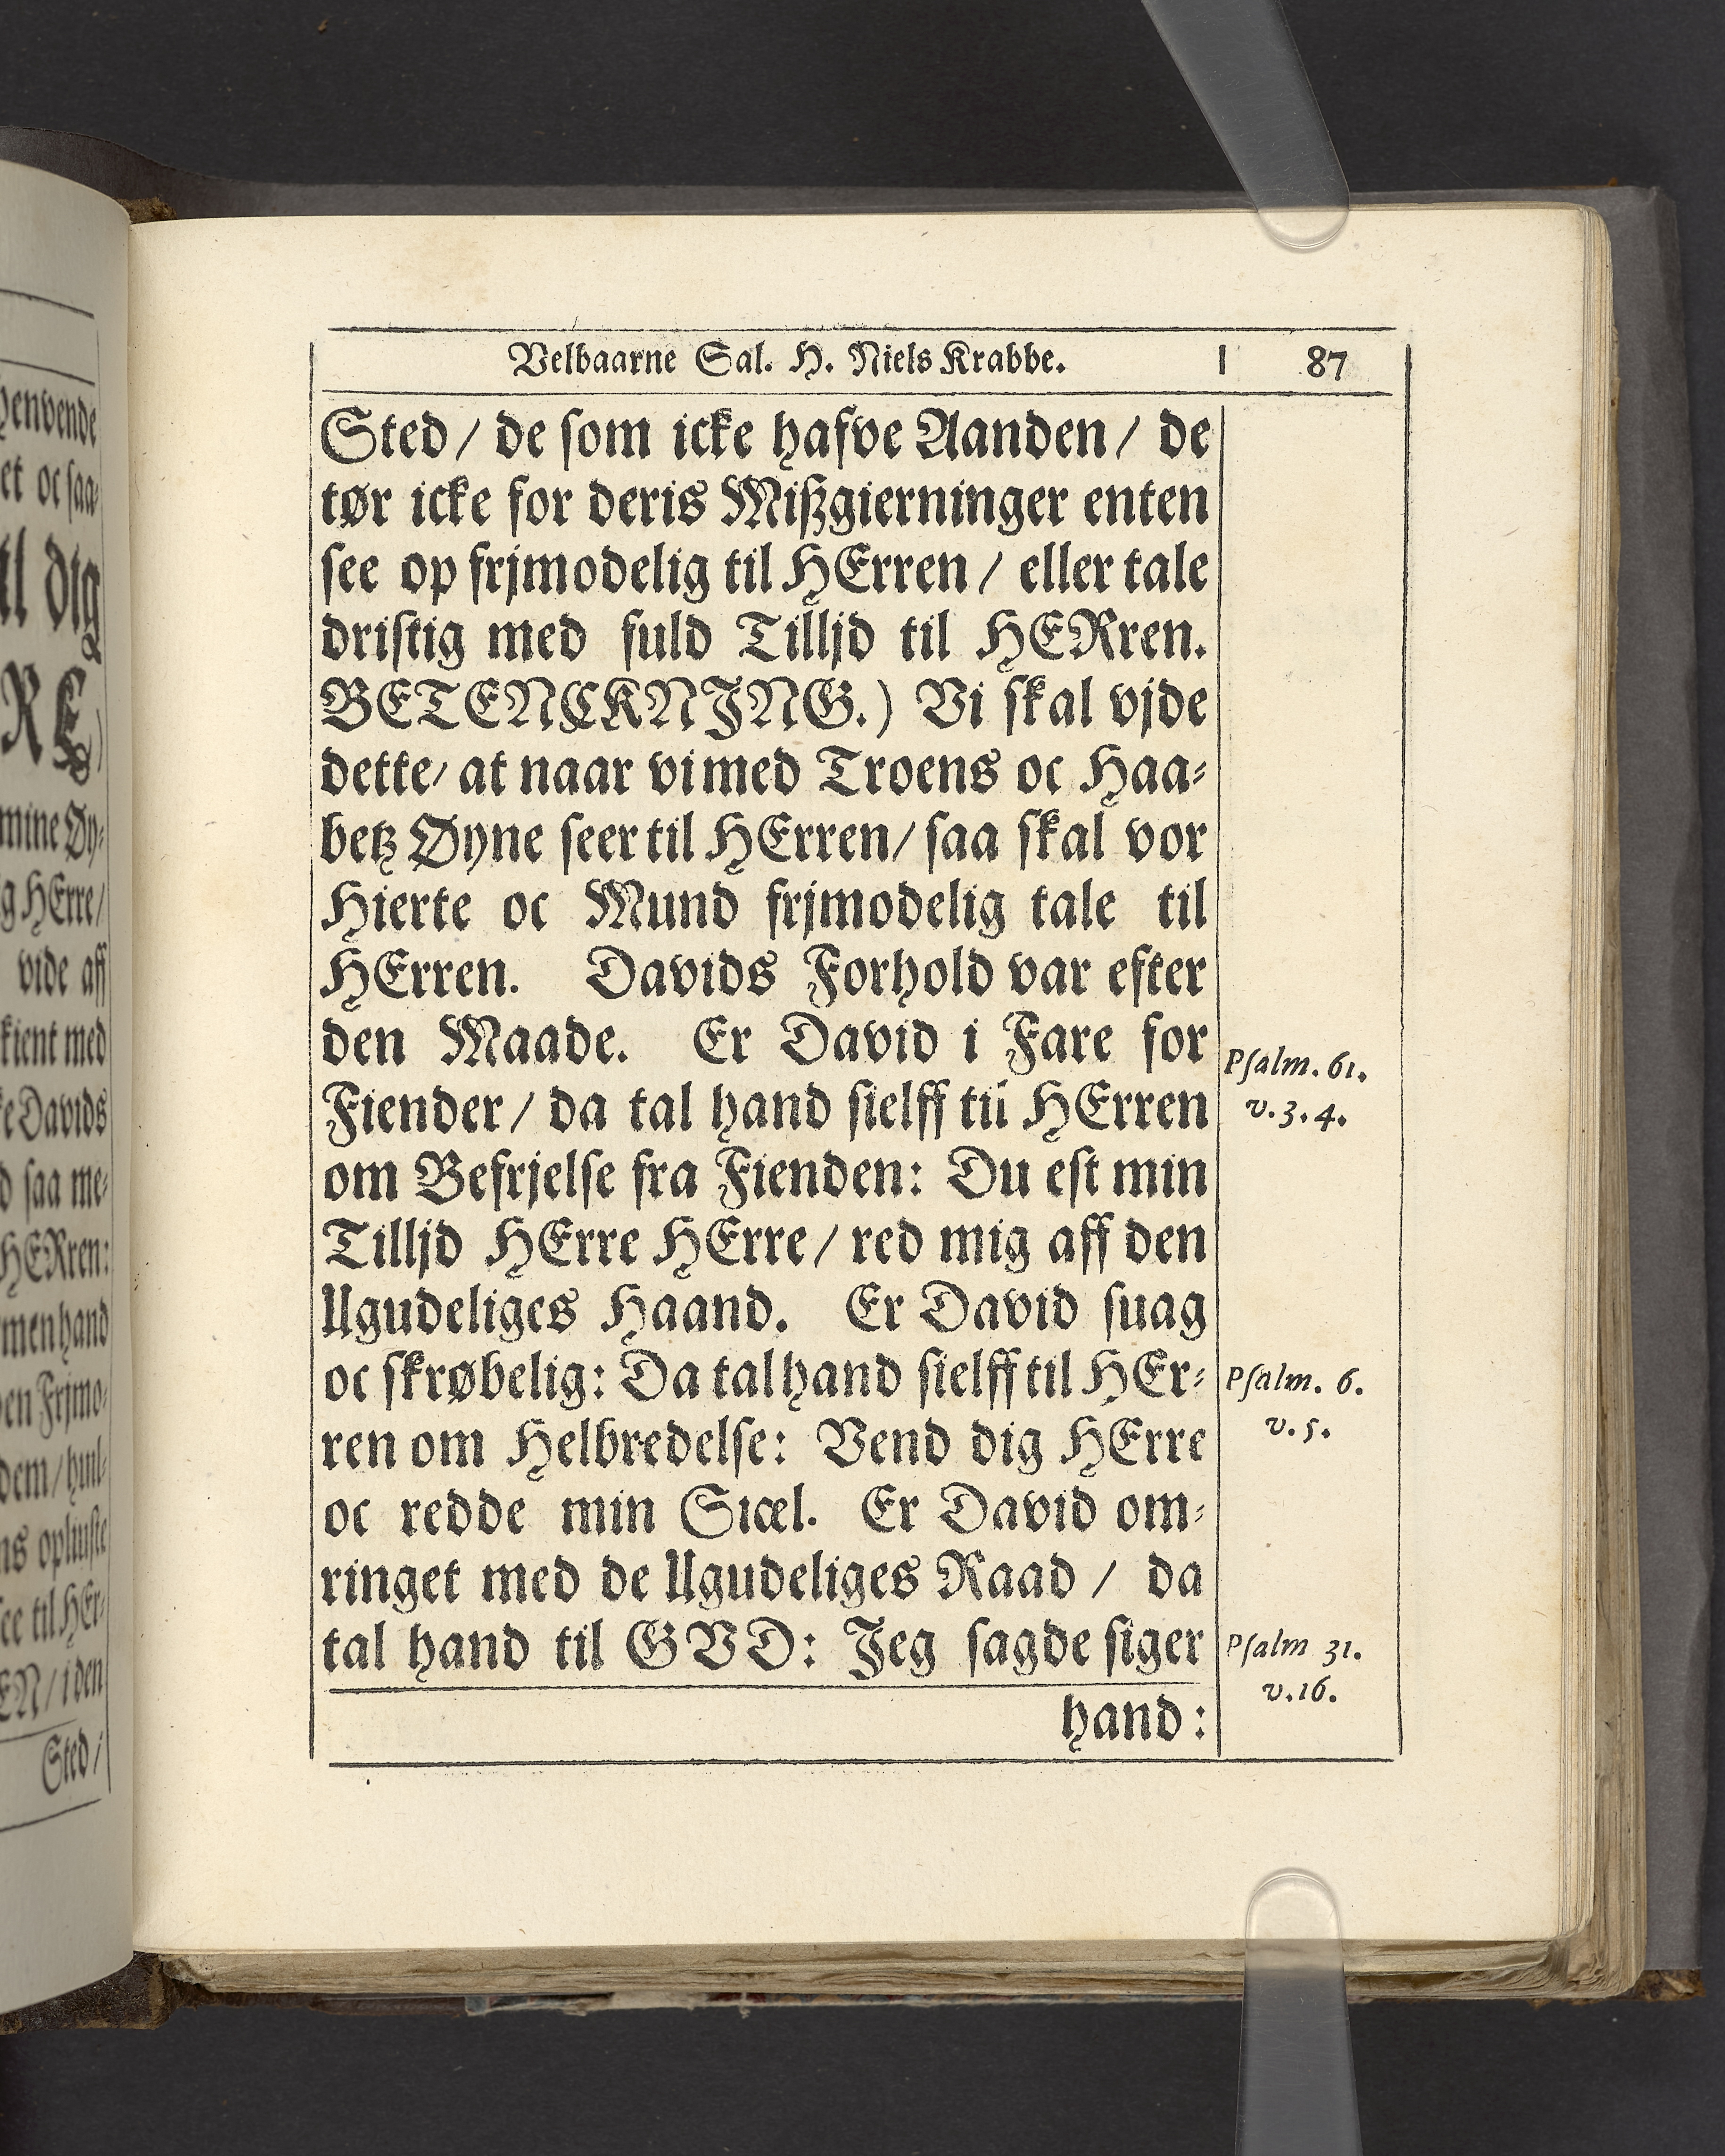 Velbaarne Sal. H. Niels Krabbe. 87
Sted / de som icke hafve Aanden / de
tør icke for deris Mißgierninger enten
see op frjmodelig til HErren / eller tale
dristig med fuld Tilljd til HERren.
BETENCKNJNG.) Vi skal vjde
dette / at naar vi med Troens oc Haa-
betz Øyne seer til HErren / saa skal vor
Hierte oc Mund frjmodelig tale til
HErren. Davids Forhold var efter
den Maade. Er David i Fare for
Psalm. 61.
Fiender / da tal hand sielff til HErren
v. 3. 4.
om Befrjelse fra Fienden: Du est min
Tilljd HErre HErre / red mig aff den
Ugudeliges Haand. Er David suag
oc skrøbelig: Da tal hand sielff til HEr-
Psalm. 6.
ren om Helbredelse: Vend dig HErre
v. 5.
oc redde min Siæl. Er David om-
ringet med de Ugudeliges Raad / da
tal hand til GVD: Jeg sagde siger
Psalm 31.
v. 16.
hand:
henvende
et oc saa-
til dig
RE)
mine Øy-
g HErre /
vide aff
kient med
Davids
saa me-
HERren:
men hand
en Frjmo-
dem /
see til HEr-
EN / i den
Sted /